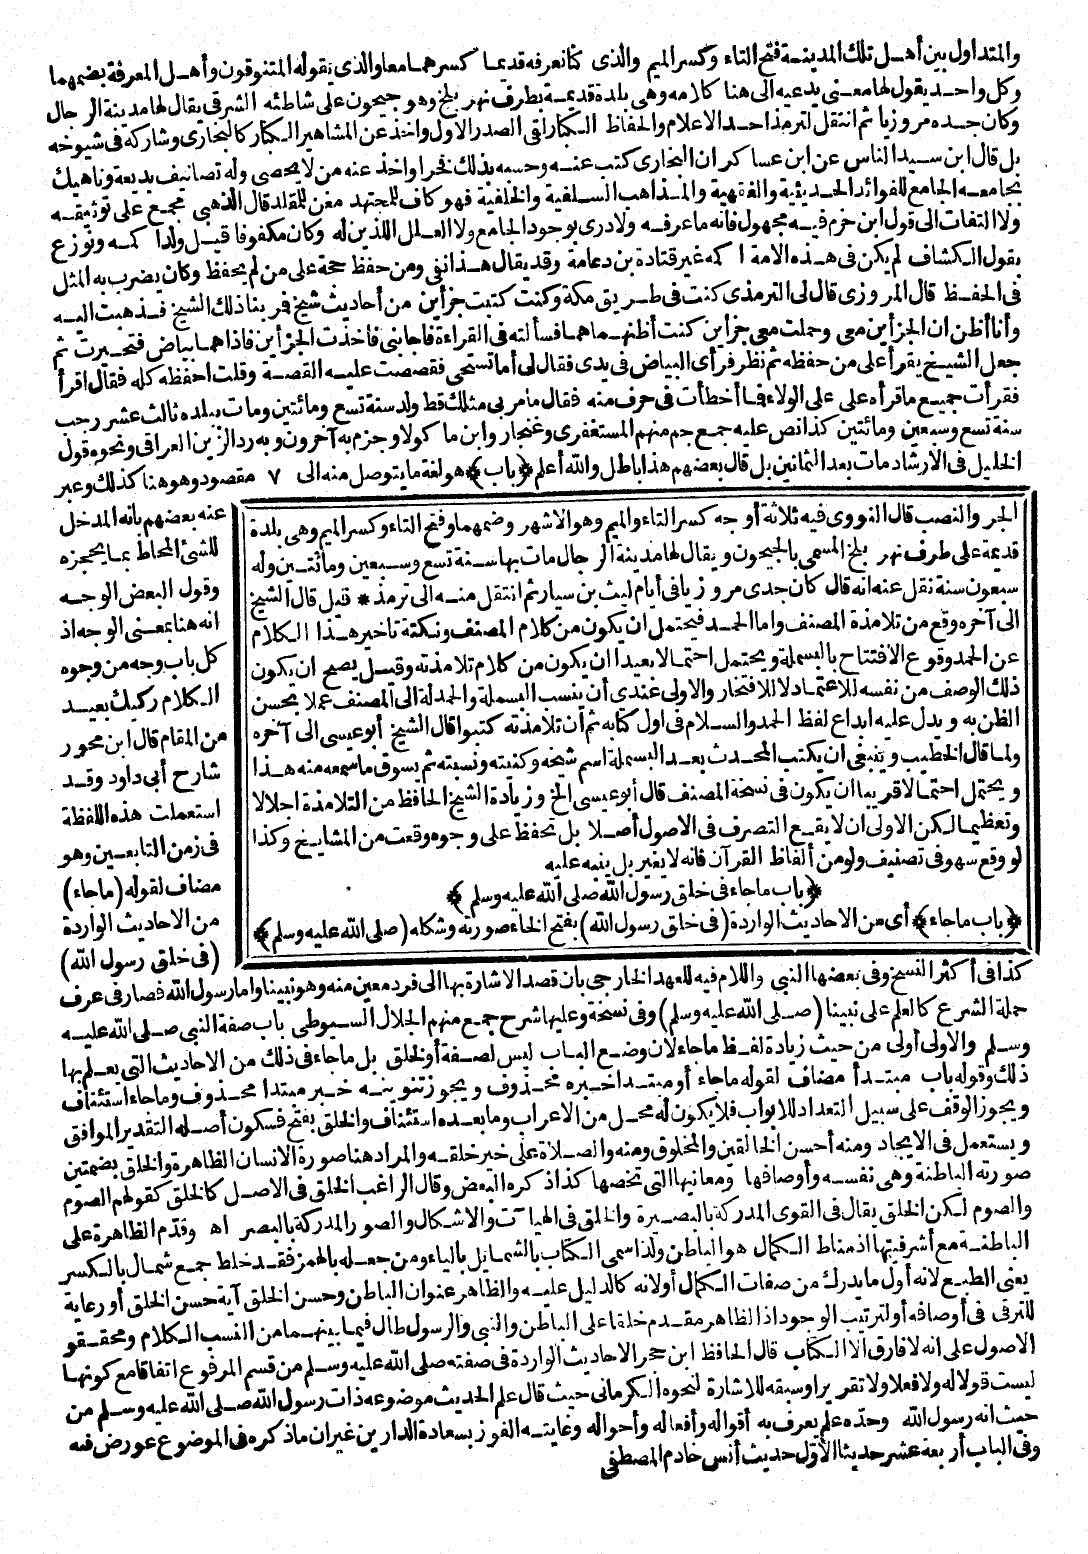 والمتداول بين أهل تلك المدينة فتح التاء وكسر الميم والذى كنا نعرفه قديما كسرهما معا والذى يقوله المتنوقون وأهل المعرفة بضمهما
وكل واحد يقول لها معنى يدعيه الى هنا كلامه وهى بلدة قديمة بطرف نهر بلخ وهو جيحون على شاطئه الشرقى يقال لها مدينة الرجال
وكان جده مروزيا ثم انتقل لترمذ احد الاعلام والحفاظ الكبار لقى الصدر الاول واخذ عن المشاهير الكبار كالبخارى وشاركه فى شيوخه
بل قال ابن سيد الناس عن ابن عساكر ان البخارى كتب عنه وحسبه بذلك فخرا واخذ عنه من لا يحصى وله تصانيف بديعة وناهيك
بجامعه الجامع للفوائد الحديثية والفقهية والمذاهب السلفية والخلفية فهو كاف للمجتهد مغن للمقلد قال الذهبى مجمع على توثيقه
ولا التفات الى قول ابن حزم فيه مجهول فانه ما عرفه ولا درى بوجود الجامع ولا العلل اللذين له وكان مكفوفا قيل ولد أكمه ونوزع
بقول الكشاف لم يكن فى هذه الامة أكمه غير قتادة بن دعامة وقد يقال هذا نفى ومن حفظ حجة على من لم يحفظ وكان يضرب به المثل
فى الحفظ قال المروزى قال لى الترمذى كنت فى طريق مكة وكنت كتبت جزأين من أحاديث شيخ فمر بنا ذلك الشيخ فذهبت اليه
وأنا أظن ان الجزأين معى وحملت معى جزأين كنت أظنهما هما فسألته فى القراءة فاجابنى فأخذت الجزأين فاذا هما بياض فتحيرت ثم
جعل الشيخ يقرأ على من حفظه ثم نظر فرأى البياض فى يدى فقال لى أما تستحى فقصصت عليه القصة وقلت احفظه كله فقال اقرأ
فقرأت جميع ما قرأه على على الولاء فما أخطأت فى حرف منه فقال ما مر بى مثلك قط ولد سنة تسع ومائتين ومات ببلده ثالث عشر رجب
سنة تسع وسبعين ومائتين كذا نص عليه جمع جم منهم المستغفرى وغنجار وابن ماكولا وجزم به آخرون وبه رد الزين العراقى ونحوه قول
الخليل فى الارشاد مات بعد الثمانين بل قال بعضهم هذا باطل والله أعلم (باب) هو لغة ما يتوصل منه الى ٧ مقصود وهو هنا كذلك وعبر
عنه بعضهم بانه المدخل
للشئ المحاط بما يحجزه
وقول البعض الوجه
انه هنا بمعنى الوجه اذ
كل باب وجه من وجوه
الكلام ركيك بعيد
من المقام قال ابن محمود
شارح أبى داود وقد
استعملت هذه اللفظة
فى زمن التابعين وهو
مضاف لقوله (ما جاء)
من الاحاديث الواردة
(فى خلق رسول الله)
الجر والنصب قال النووى فيه ثلاثة أوجه كسر التاء والميم وهو الاشهر وضمهما وفتح التاء وكسر الميم وهى بلدة
قديمة على طرف نهر بلخ المسمى بالجيحون ويقال لها مدينة الرجال مات بها سنة تسع وسبعين ومائتين وله
سبعون سنة نقل عنه انه قال كان جدى مروزيا فى أيام ليث بن سيار ثم انتقل منه الى ترمذ * قيل قال الشيخ
الى آخره وقع من تلامذة المصنف واما الحمد فيحتمل ان يكون من كلام المصنف ونكتة تأخير هذا الكلام
عن الحمد وقوع الافتتاح بالبسملة ويحتمل احتمالا بعيدا ان يكون من كلام تلامذته وقيل يصح ان يكون
ذلك الوصف من نفسه للاعتماد لا للافتخار والاولى عندى أن ينسب البسملة والحمدلة الى المصنف عملا بحسن
الظن به ويدل عليه ابداع لفظ الحمد والسلام فى اول كتابه ثم أن تلامذته كتبوا قال الشيخ أبو عيسى الى آخره
ولما قال الخطيب وينبغى ان يكتب المحدث بعد البسملة اسم شيخه وكنيته ونسبته ثم يسوق ما سمعه منه هذا
ويحتمل احتمالا قريبا ان يكون فى نسخة المصنف قال أبو عيسى الخ وزيادة الشيخ الحافظ من التلامذة اجلالا
وتعظيما لكن الاولى ان لا يقع التصرف فى الاصول أصلا بل تحفظ على وجوه وقعت من المشايخ وكذا
لو وقع سهو فى تصنيف ولو من ألفاظ القرآن فانه لا يغير بل ينبه عليه
(باب ما جاء فى خلق رسول الله صلى الله عليه وسلم)
(باب ما جاء) أى من الاحاديث الواردة (فى خلق رسول الله) بفتح الخاء صورته وشكله (صلى الله عليه وسلم)
كذا فى أكثر النسخ وفى بعضها النبى واللام فيه للعهد الخارجى بان قصد الاشارة بها الى فرد معين منه وهو نبينا وأما رسول الله فصار فى عرف
حملة الشرع كالعلم على نبينا (صلى الله عليه وسلم) وفى نسخة وعليها شرح جمع منهم الجلال السيوطى باب صفة النبى صلى الله عليه
وسلم والاولى أولى من حيث زيادة لفظ ما جاء لان وضع الباب ليس لصفة أو لخلق بل ما جاء فى ذلك من الاحاديث التى يعلم بها
ذلك وقوله باب مبتدأ مضاف لقوله ما جاء أو مبتدا خبره محذوف ويجوز تنوينه خبر مبتدا محذوف وما جاء استئناف
ويجوز الوقف على سبيل التعداد للابواب فلا يكون له محل من الاعراب وما بعده استئناف والخلق بفتح فسكون أصله التقدير الموافق
ويستعمل فى الايجاد ومنه أحسن الخالقين والمخلوق ومنه والصلاة على خير خلقه والمراد هنا صورة الانسان الظاهرة والخلق بضمتين
صورته الباطنة وهى نفسه وأوصافها ومعانيها التى تخصها كذا ذكره البعض وقال الراغب الخلق فى الاصل كالخلق كقولهم الصوم
والصوم لكن الخلق يقال فى القوى المدركة بالبصيرة والخلق فى الهيآت والاشكال والصور المدركة بالبصر اه وقدم الظاهرة على
الباطنة مع أشرفيتها اذ مناط الكمال هو الباطن ولذا سمى الكتاب بالشمايل بالياء ومن جعله بالهمز فقد خلط جمع شمال بالكسر
يعنى الطبع لانه أول ما يدرك من صفات الكمال أو لانه كالدليل عليه والظاهر عنوان الباطن وحسن الخلق آية حسن الخلق أو رعاية
للترقى فى أوصافه أو لترتيب الوجود اذ الظاهر مقدم خلقا على الباطن والنبى والرسول طال فيما بينهما من النسب الكلام ومحققو
الاصول على انه لا فارق الا الكتاب قال الحافظ ابن حجر الاحاديث الواردة فى صفته صلى الله عليه وسلم من قسم المرفوع اتفاقا مع كونها
ليست قولا له ولا فعلا ولا تقريرا وسبقه للاشارة لنحوه الكرمانى حيث قال علم الحديث موضوعه ذات رسول الله صلى الله عليه وسلم من
حيث انه رسول الله وحده علم يعرف به أقواله وأفعاله وأحواله وغايته الفوز بسعادة الدارين غير ان ما ذكره فى الموضوع عورض فيه
وفى الباب أربعة عشر حديثا الأول حديث أنس خادم المصطفى